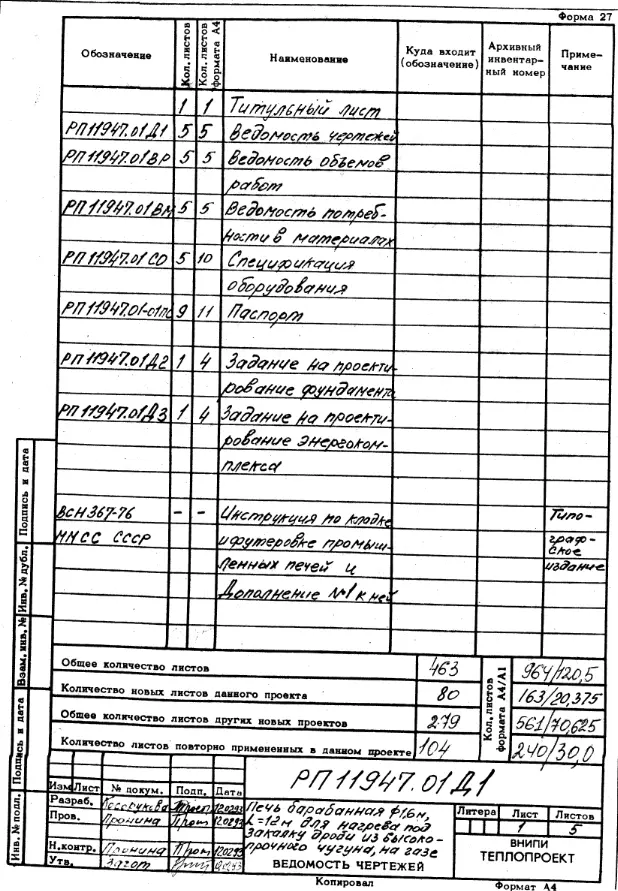 Форма 27
Обозначение Кол. листов Кол. листов формата А4 Наименование Куда входит (обозначение) Архивный инвентарный номер Примечание
1 1 Титульный лист
РП11947.01Д1 5 5 Ведомость чертежей
РП11947.01ВР 5 5 Ведомость объемов
работ
РП11947.01ВМ 5 5 Ведомость потреб-
ности в материалах
РП11947.01СО 5 10 Спецификация
оборудования
РП11947.01-01ПС 9 11 Паспорт
РП11947.01Д2 1 4 Задание на проекти-
рование фундамента
РП11947.01Д3 1 4 Задание на проекти-
рование энергоком-
плекса
ВСН 367-76 - - Инструкция по кладке Типо-
ММСС СССР и футеровке промыш- граф-
ское
ленных печей и издание
Дополнение №1 к ней
Общее количество листов 463 964/120,5
Количество новых листов данного проекта 80 163/20,375
Общее количество листов других новых проектов 279 561/70,625
Количество листов повторно примененных в данном проекте 104 240/30,0
Кол. листов формата А4/А1
РП11947.01Д1
Изм Лист № докум. Подп. Дата
Разраб.
Пров. Пронина
Н.контр. Пронина
Утв.
Печь барабанная ф1,6м,
L=12м для нагрева под
закалку дроби из высоко-
прочного чугуна, на газе
ВЕДОМОСТЬ ЧЕРТЕЖЕЙ
Литера Лист Листов
1 5
ВНИПИ
ТЕПЛОПРОЕКТ
Копировал Формат А4
Инв. № подл. Подпись и дата Взам. инв. № Инв. № дубл. Подпись и дата